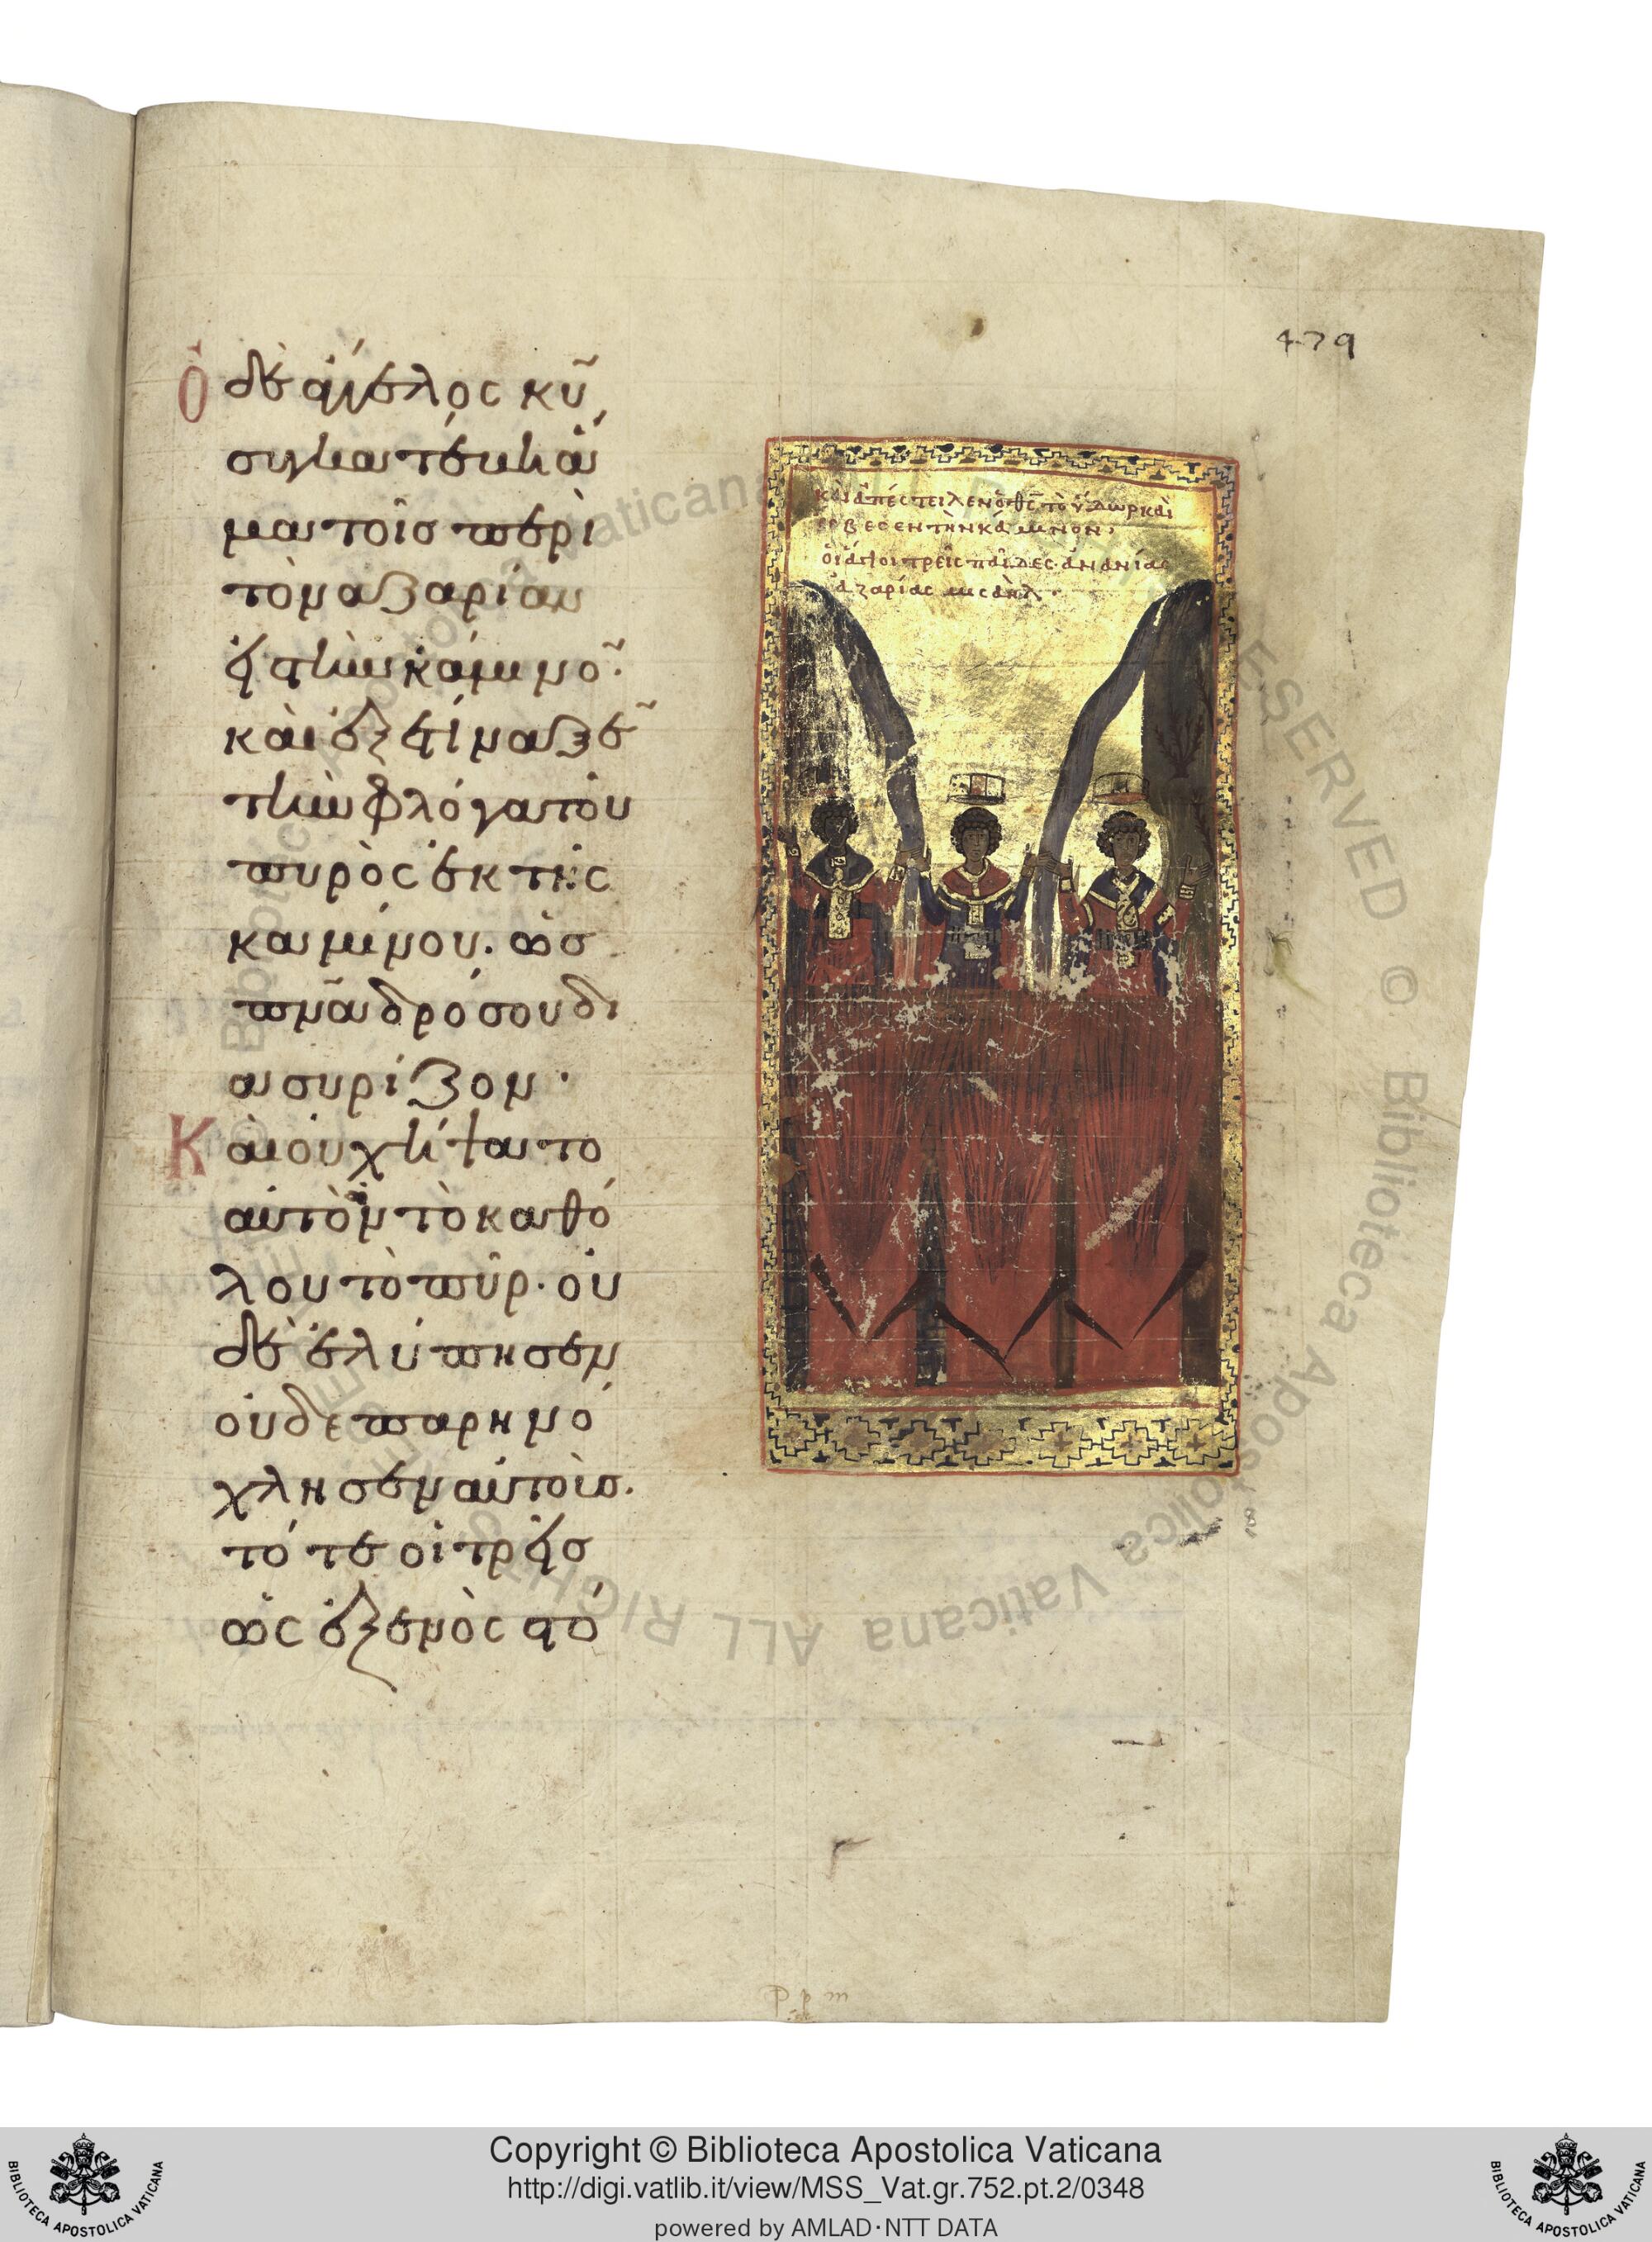 Ὁ δὲ ἄγγελος κυ̃
συγκατέβη ἅ
μα τοῖς περὶ
τὸν ἀζαρίαν
εἰς τὴν κάμινο ̃.
καὶ ἐξετίναξε ̃
τὴν φλόγα τοῦ
πυρὸς ἐκ τῆς
καμίνου. ὡς
πνᾶ δρόσου δι
ασυρίζον·
Καὶ οὐχ ἥψατο
αὐτὸν τὸ καθό
λου τὸ πῦρ. οὐ
δὲ ἐλύπησεν
οὐδε παρηνό
χλησεν αὐτοῖς.
τότε οἱ τρεῖς
ὡς ἐξ ἑνὸς στό
479
καὶ ἀπέστειλεν ὁ θς τὸ ὕδωρ καὶ
ἔσβεσεν τὴν κάμινον,
ὁι ἅγιοι τρεῖς παῖδες· ἀνανίας
ἀζαρίας μισαὴλ·
P p m
© Biblioteca Apostolica Vaticana ALL RIGHTS RESERVED
Copyright © Biblioteca Apostolica Vaticana
http://digi.vatlib.it/view/MSS_Vat.gr.752.pt.2/0348
powered by AMLAD·NTT DATA
BIBLIOTECA APOSTOLICA VATICANA
BIBLIOTECA APOSTOLICA VATICANA